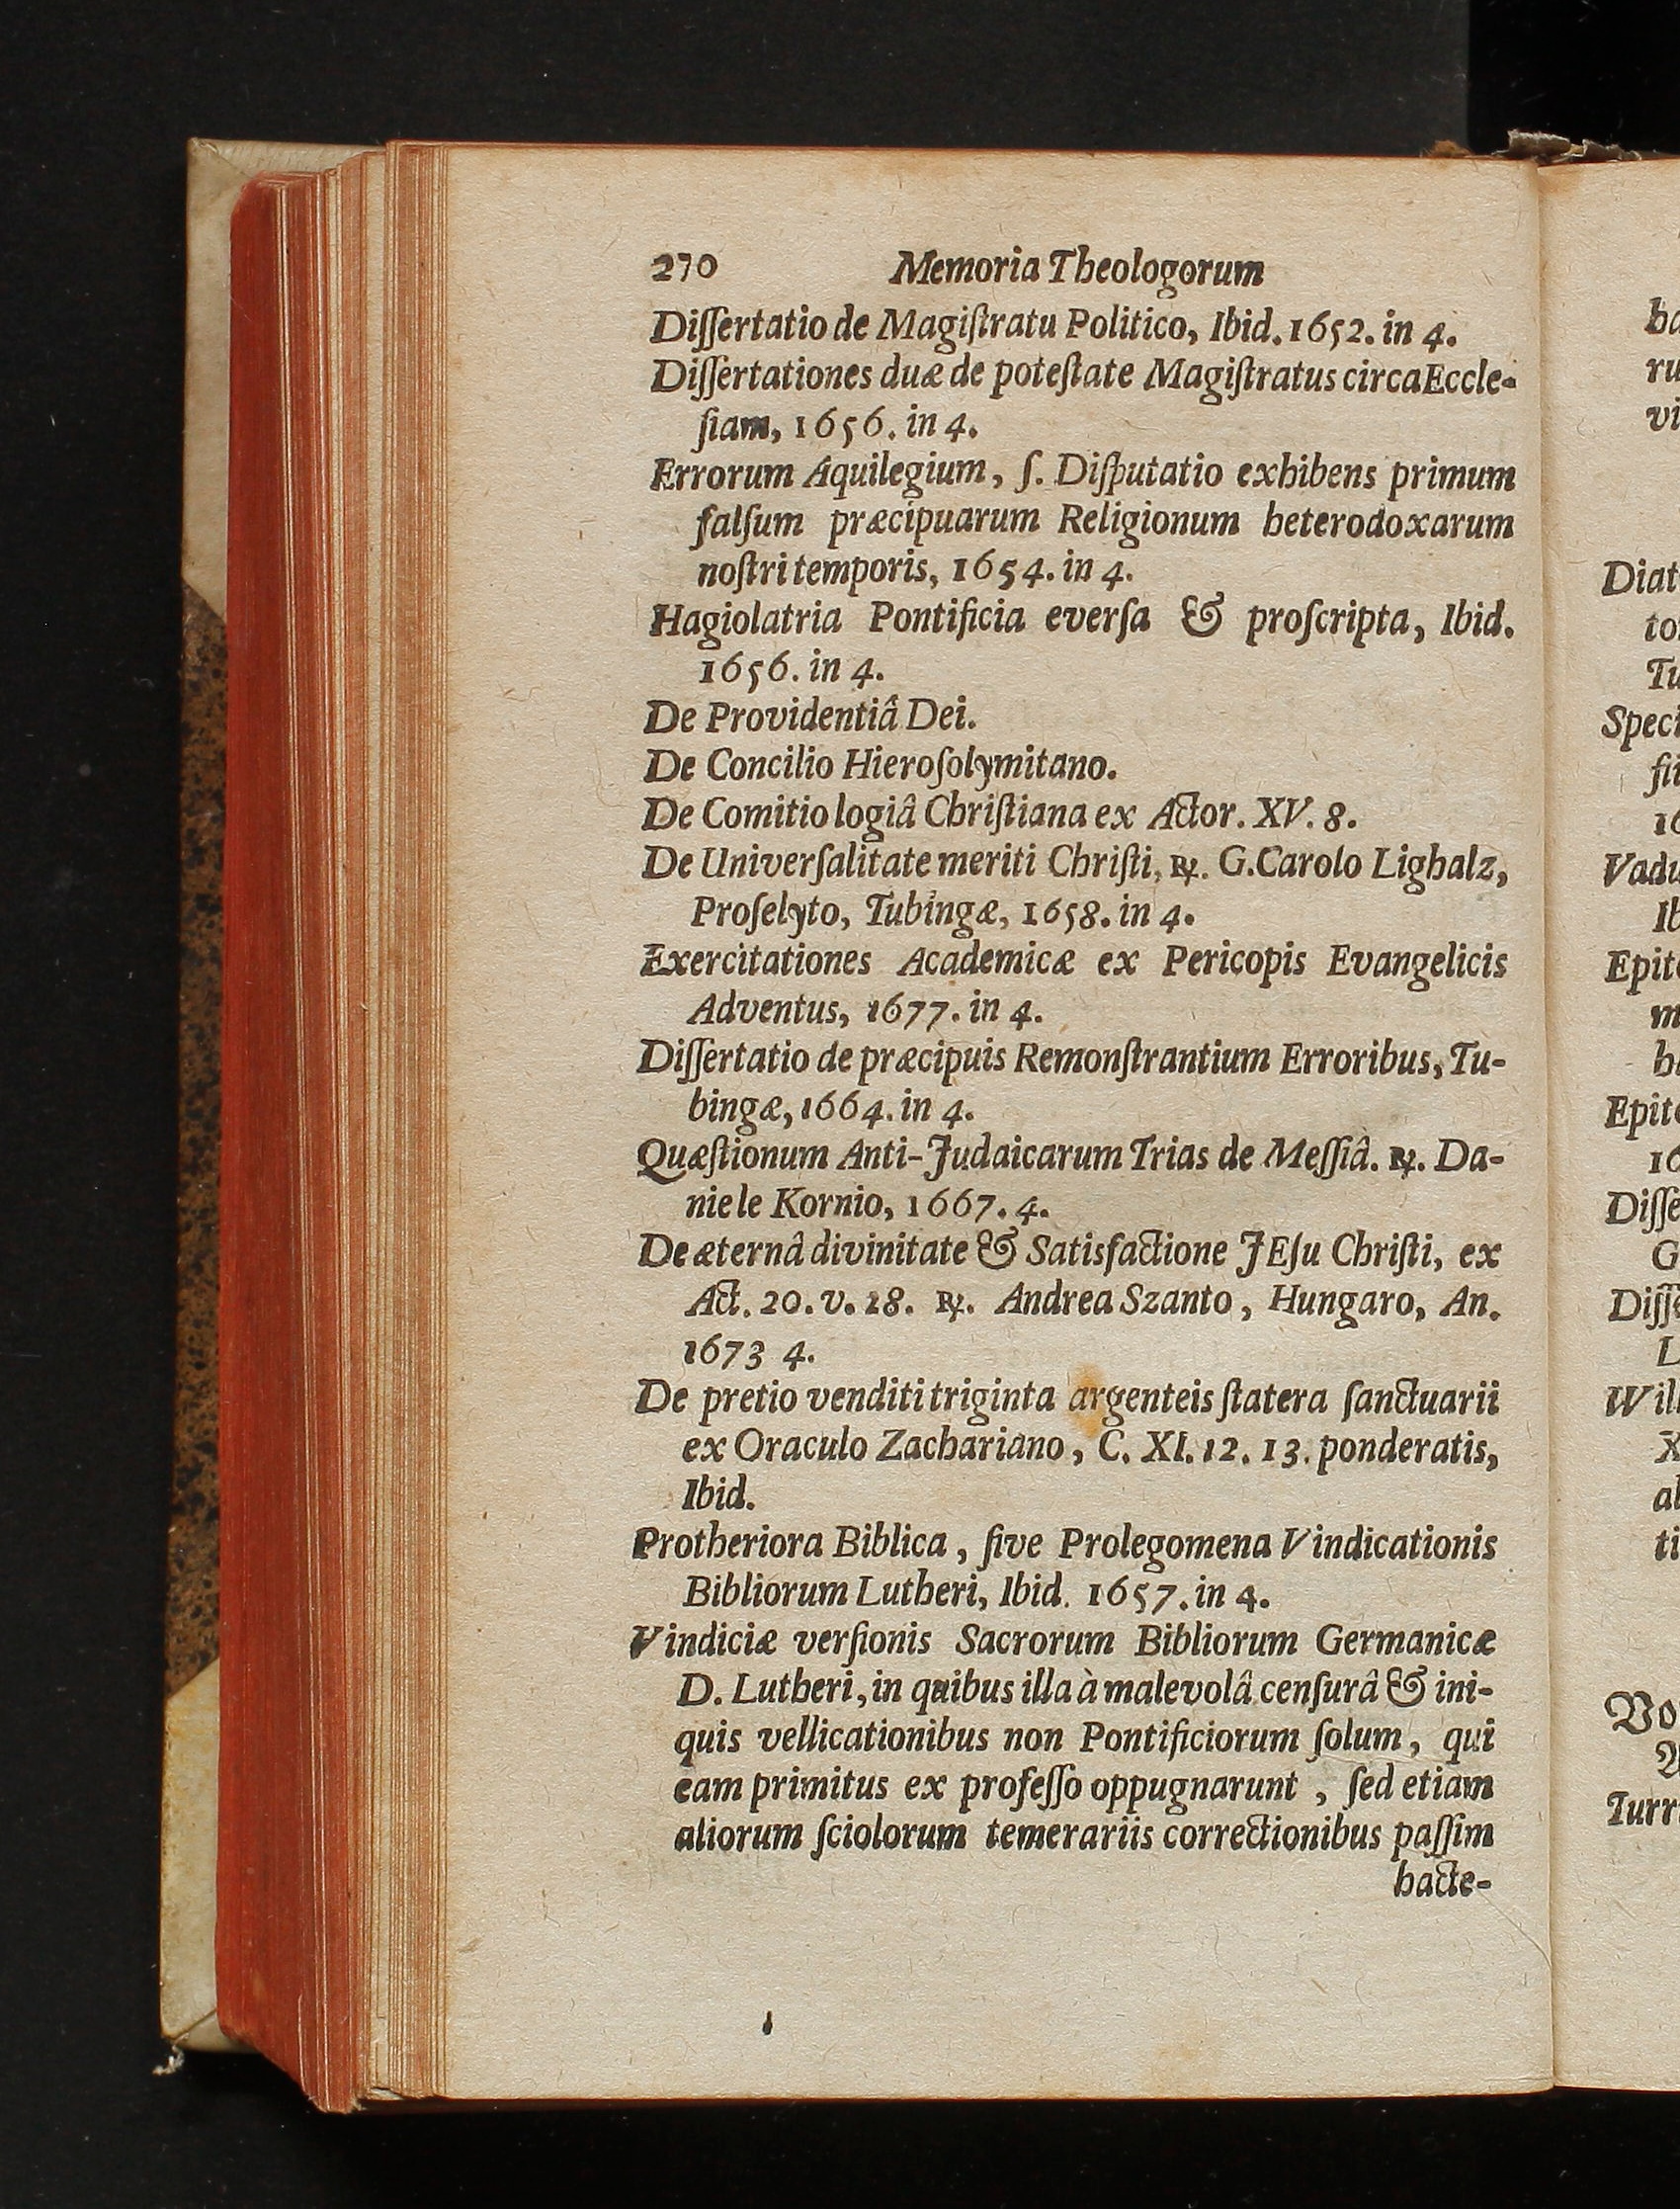 270 Memoria Theologorum
Diſſertatio de Magiſtratu Politico, Ibid. 1652. in 4.
Diſſertationes duæ de poteſtate Magiſtratus circa Eccle-
ſiam, 1656. in 4.
Errorum Aquilegium, ſ. Diſputatio exhibens primum
falſum præcipuarum Religionum heterodoxarum
noſtri temporis, 1654. in 4.
Hagiolatria Pontificia everſa & proſcripta, Ibid.
1656. in 4.
De Providentiâ Dei.
De Concilio Hieroſolymitano.
De Comitio logiâ Chriſtiana ex Actor. XV. 8.
De Univerſalitate meriti Chriſti, ℞. G. Carolo Lighalz,
Proſelyto, Tubingæ, 1658. in 4.
Exercitationes Academicæ ex Pericopis Evangelicis
Adventus, 1677. in 4.
Diſſertatio de præcipuis Remonſtrantium Erroribus, Tu-
bingæ, 1664. in 4.
Quæſtionum Anti-Judaicarum Trias de Meſſiâ. ℞. Da-
niele Kornio, 1667. 4.
De æternâ divinitate & Satisfactione JEſu Chriſti, ex
Act. 20. v. 28. ℞. Andrea Szanto, Hungaro, An.
1673 4.
De pretio venditi triginta argenteis ſtatera ſanctuarii
ex Oraculo Zachariano, C. XI. 12. 13. ponderatis,
Ibid.
Protheriora Biblica, ſive Prolegomena Vindicationis
Bibliorum Lutheri, Ibid. 1657. in 4.
Vindiciæ verſionis Sacrorum Bibliorum Germanicæ
D. Lutheri, in quibus illa à malevolâ cenſurâ & ini-
quis vellicationibus non Pontificiorum ſolum, qui
eam primitus ex profeſſo oppugnarunt, ſed etiam
aliorum ſciolorum temerariis correctionibus paſſim
hacte-